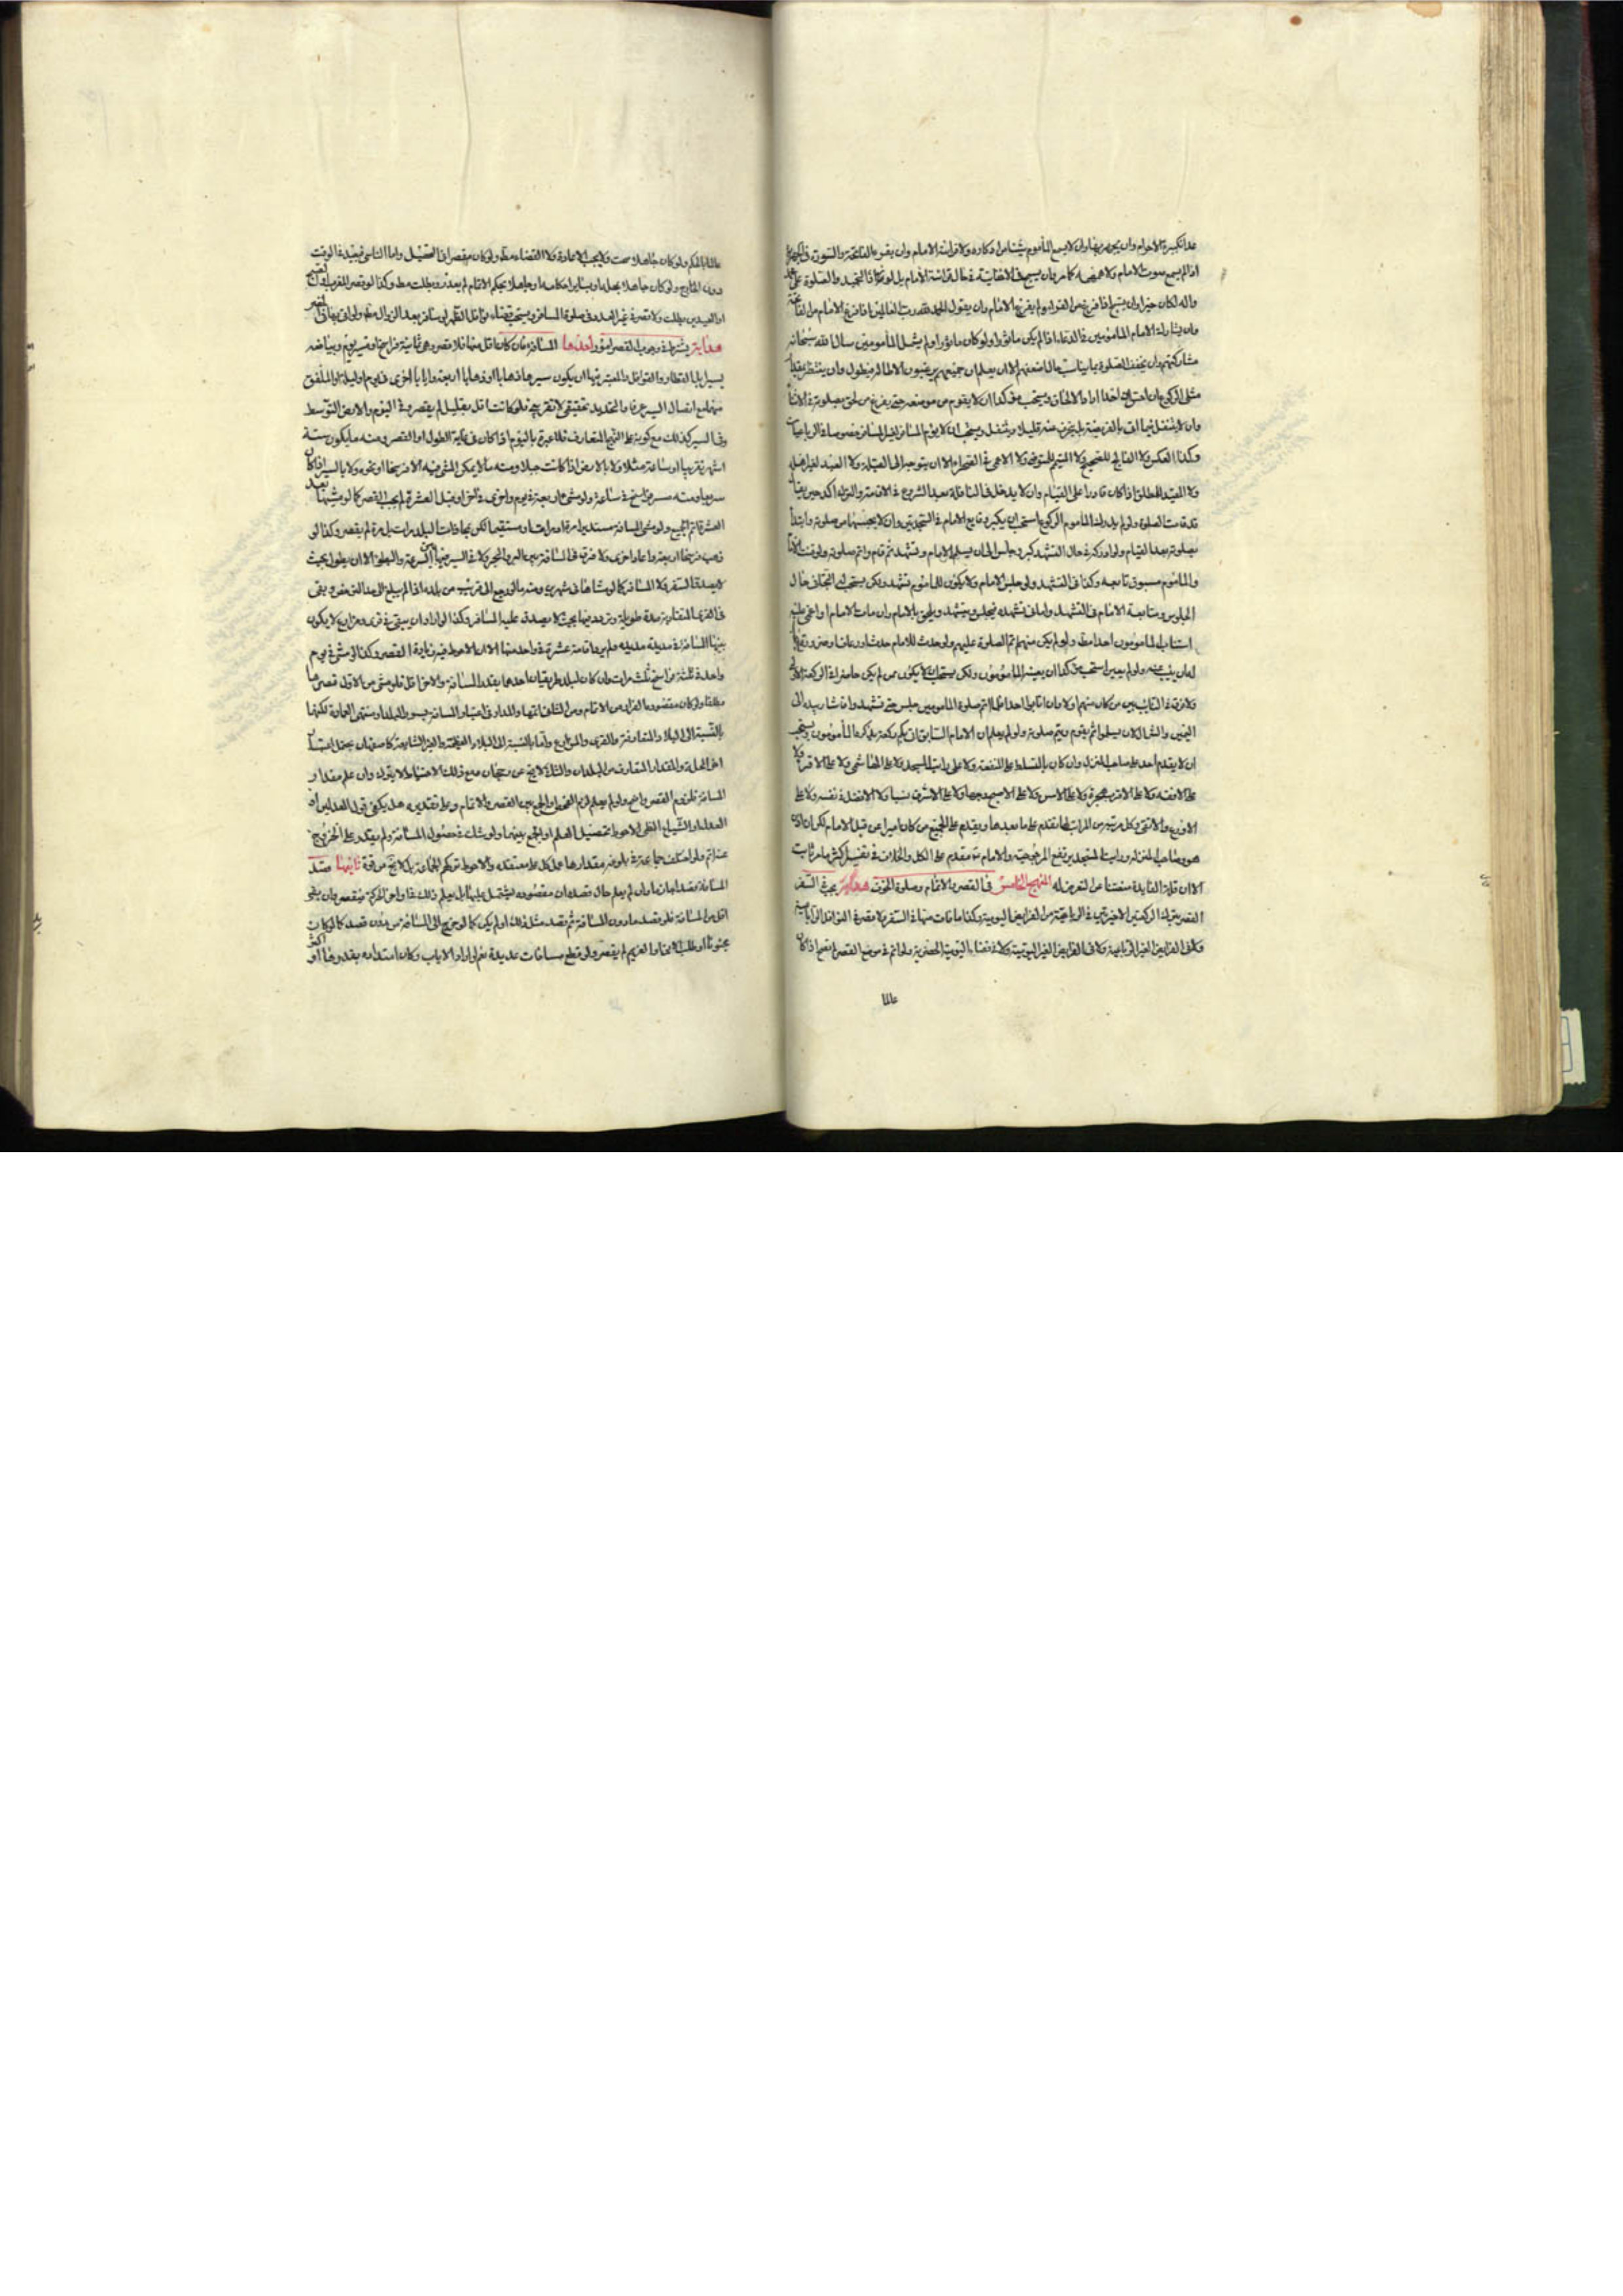 عدا تكبيرة الاحرام وان يجهر بها وان لا يسمع المأموم شيئا من اذكاره ولا قرائة الامام وان يقرء بالفاتحة والسورة في الجهرية
اذا لم يسمع صوت الامام ولا همهمه كما مر وان يسبح في الاخفاتية في حال قرائة الامام بل لو قرء التحميد والصلوة على محمد
واله لكان خيرا وان يسبح اذا فرغ من القرائة ولم يفرغ الامام وان يقول الحمد لله رب العالمين اذا فرغ الامام من الفاتحة
وان يشارك الامام المأمومين في الدعاء اذا لم يكن ماثورا ولو كان ماثورا ولم يشمل المأمومين سال الله سبحانه
مشاركتهم وان يخفف الصلوة بما يناسب حال اضعفهم الا ان يعلم ان جميعهم يرغبون الاطالة فيطول وان ينتظر بقدر
مثلى الركوع ان احس ان احدا اراد الالحاق ويستحب مؤكدا ان لا يقوم من موضعه حتى يفرغ من لحق بصلوته في الاثناء
وان لا يتنفل فيما اتى بالفريضة بل ينحرف عنه قليلا ويتنفل ويستحب ان لا يؤم المسافر لغير المسافر خصوصا في الرباعيات
وكذا العكس ولا الفالج للصحيح ولا المتيمم للمتوضى ولا الاعمى في الصحراء الا ان يتوجه الى القبلة ولا العبد لغير اهله
ولا المقيد المطلق اذا كان قادرا على القيام وان لا يدخل في النافلة بعد الشروع في الاقامة والترك اكد حين يقال
قد قامت الصلوة ولو لم يدرك المأموم الركوع استحب ان يكبر ويتابع الامام في السجدتين وان لا يحسبهما من صلوته وابتدأ
بصلوته بعد القيام ولو ادركه في حال التشهد كبر وجلس الى ان يسلم الامام وتشهد ثم قام واتم صلوته ولو قنت الامام
والمأموم مسبوق تابعه وكذا في التشهد ولو جلس الامام ولا يكون للمأموم تشهد ولكن يستحب له التجافي حال
الجلوس ومتابعة الامام في التشهد واما في تشهده فيجلس ويتشهد ويلحق بالامام وان مات الامام او اغمي عليه
استناب المأمومون احدا مطلقا ولو لم يكن منهم ثم الصلوة عليهم ولو حدث للامام حدث او رعاف او ضرورة
له ان ينيب عنه ولو لم يعين استحب مؤكدا ان يعينه المأمومون ولكن يستحب ان لا يكون ممن لم يكن حاضرا في الركعة الاولى
ولا فرق في النائب بين من كان منهم اولا وان انابوا احدا فلما اتم صلوة المأمومين جلس حتى تشهدوا واشار بيده الى
اليمين والشمال لان يسلموا ثم يقوم ويتم صلوته ولو لم يعلم ان الامام السابق ان بكم ركعة صلى ذكره المأمومون ويستحب
ان لا يتقدم احد على صاحب المنزل وان كان بالتسلط على المنفعة ولا على راتب المسجد ولا على الهاشمي ولا على الاقرء ولا
على الافقه ولا على الاقدم هجرة ولا على الاسن ولا على الاصبح وجها ولا على الاشرف نسبا ولا الافضل في نفسه ولا على
الاورع والاتقى وكل مرتبة من المراتب لها تقدم على ما بعدها ويقدم على الجميع من كان اميرا من قبل الامام لكن ان اذن
هو وصاحب المنزل وراتب المسجد يرتفع المرجوحية والامام عليه مقدم على الكل والخلاف في تفصيل اكثر ما مر ثابت
الا ان قلة الفايدة منعتنا عن التعرض له المنهج الخامس في القصر والاتمام وصلوة الخوف هداية يجب في السفر
القصر بترك الركعتين الاخيرتين في الرباعية من الفرايض اليومية وكذا ما فات منها في السفر ولا يقصر في النوافل الرباعية
ولا في الفرايض الغير الرباعية ولا في الفرايض الغير اليومية ولا في قضاء اليومية الحضرية ولو اتم في موضع القصر لم يصح اذا كان
عالما
عالما بالحكم ولو كان جاهلا صحت ولا يجب الاعادة ولا القضاء مطلقا ولو كان مقصرا في التحصيل واما الناسي فيعيد في الوقت
دون الخارج ولو كان جاهلا بحلها وبساير احكامها وجاهلا بحكم الاتمام لم يعذر وبطلت مطلقا وكذا لو قصر المغرب او الصبح
او العيدين بطلت ولا قصر في غير العدد في صلوة المسافر ويستحب قضاء نوافل الظهر لو سافر بعد الزوال مطلقا ولو اتى بها في السفر
هداية يشترط في وجوب القصر امور احدها المسافة فان كان اقل منها فلا قصر وهي ثمانية فراسخ او مسير يوم وبياضه
بسير الابل القطار والقوافل والمعتبر فيها ان يكون سيرها ذهابا او ذهابا اربعة وايابا اخرى في يوم او ليلة او الملفق
منهما مع اتصال السير عرفا والتحديد تحقيقي لا تقريبي فلو كانت اقل بقليل لم يقصر وفي اليوم والارض التوسط
وفي السير كذلك مع كونه على النهج المتعارف فلا عبرة باليوم اذا كان في غاية الطول او القصر ومنه ما يكون ستة
اشهر تقريبا او ساعة مثلا ولا بالارض اذا كانت جبلا ومنه ما لا يمكن المشي فيه الا فرسخا او نحوه ولا بالسير اذا كان
سريعا ومنه سير فراسخ في ساعة ولو مشى اربعة في يوم واخرى في اخر او قبل العشرة لم يجب القصر كما لو مشيها بعد
العشرة لم يجب ولو مشى المسافة مستديرا مرة او مرات او مستقيما لكن بمحاذات البلد مرات بل مرة لم يقصر وكذا لو
ذهب فرسخا اربعة واعاد اخرى ولا فرق في المسافة بين البر والبحر ولا في السير فيها السرعة والبطؤ الا ان يطول بحيث
لا يصدق السفر ولا المسافر كما لو مشاها في شهرين ومنه ما لو رجع الى قريب من بلده اذا لم يبلغ الى حد الترخص وبقي
في القرى المتقاربة مدة طويلة وتردد فيها بحيث لا يصدق عليه المسافر وكذا لو اراد ان يبقى في قرى ومزارع لا يكون
بينها المسافة في مدة مديدة ولم يرد اقامة عشرة في واحد منها الا ان الاحوط فيه زيادة القصر وكذا لو مشى في يوم
واحد في ثلثة فراسخ ثلث مرات وان كان لبلد طريقان احدهما بقدر المسافة والاخر اقل فلو مشى من الاول قصر
مطلقا ولو كان مقصوده الفرار من الاتمام ومن الثاني اتمها والمدار في اعتبار المسافة بسور البلد او منتهى العمارة لكنهما
بالنسبة الى البلاد المتعارفة والقرى والمزارع واما بالنسبة الى البلاد العظيمة والغير المتعارفة كاصفهان يحتمل اعتبار
اخر المحلة والمقدار المتعارف من البلدان والثاني لا يخ عن رجحان ومع ذلك الاحتياط لا يترك وان علم مقدار
المسافة فلزوم القصر واضح ولو لم يعلم لزم الفحص او الجمع بين القصر والاتمام وعلى تقديره هل يكفي قول العدلين او
العدل او الشياع الظني الاحوط تحصيل العلم او الجمع بينهما ولو شك في حصول المسافة ولم يقدر على الخروج
عنه اتم ولو اختلف جماعة في بلوغه مقدارها عمل كل على معتقده والاحوط تركهم الجماعة بل لا يخ عن قوة ثانيها قصد
المسافة قصدا جازما وان لم يعلم حال قصده ان مقصوده يشتمل عليها بل يعلم ذلك في اواخر الحركة فيقصر وان بقي
اقل من المسافة فلو قصد ما دون المسافة ثم قصد مثل ذلك او لم يكن كما لو خرج الى المسافة من بدون قصد كما لو كان
مجنونا او طلب الابق او الغريم لم يقصر ولو قطع مسافات عديدة نعم لو اراد الاياب وكان امتداده بقدرها او اكثر